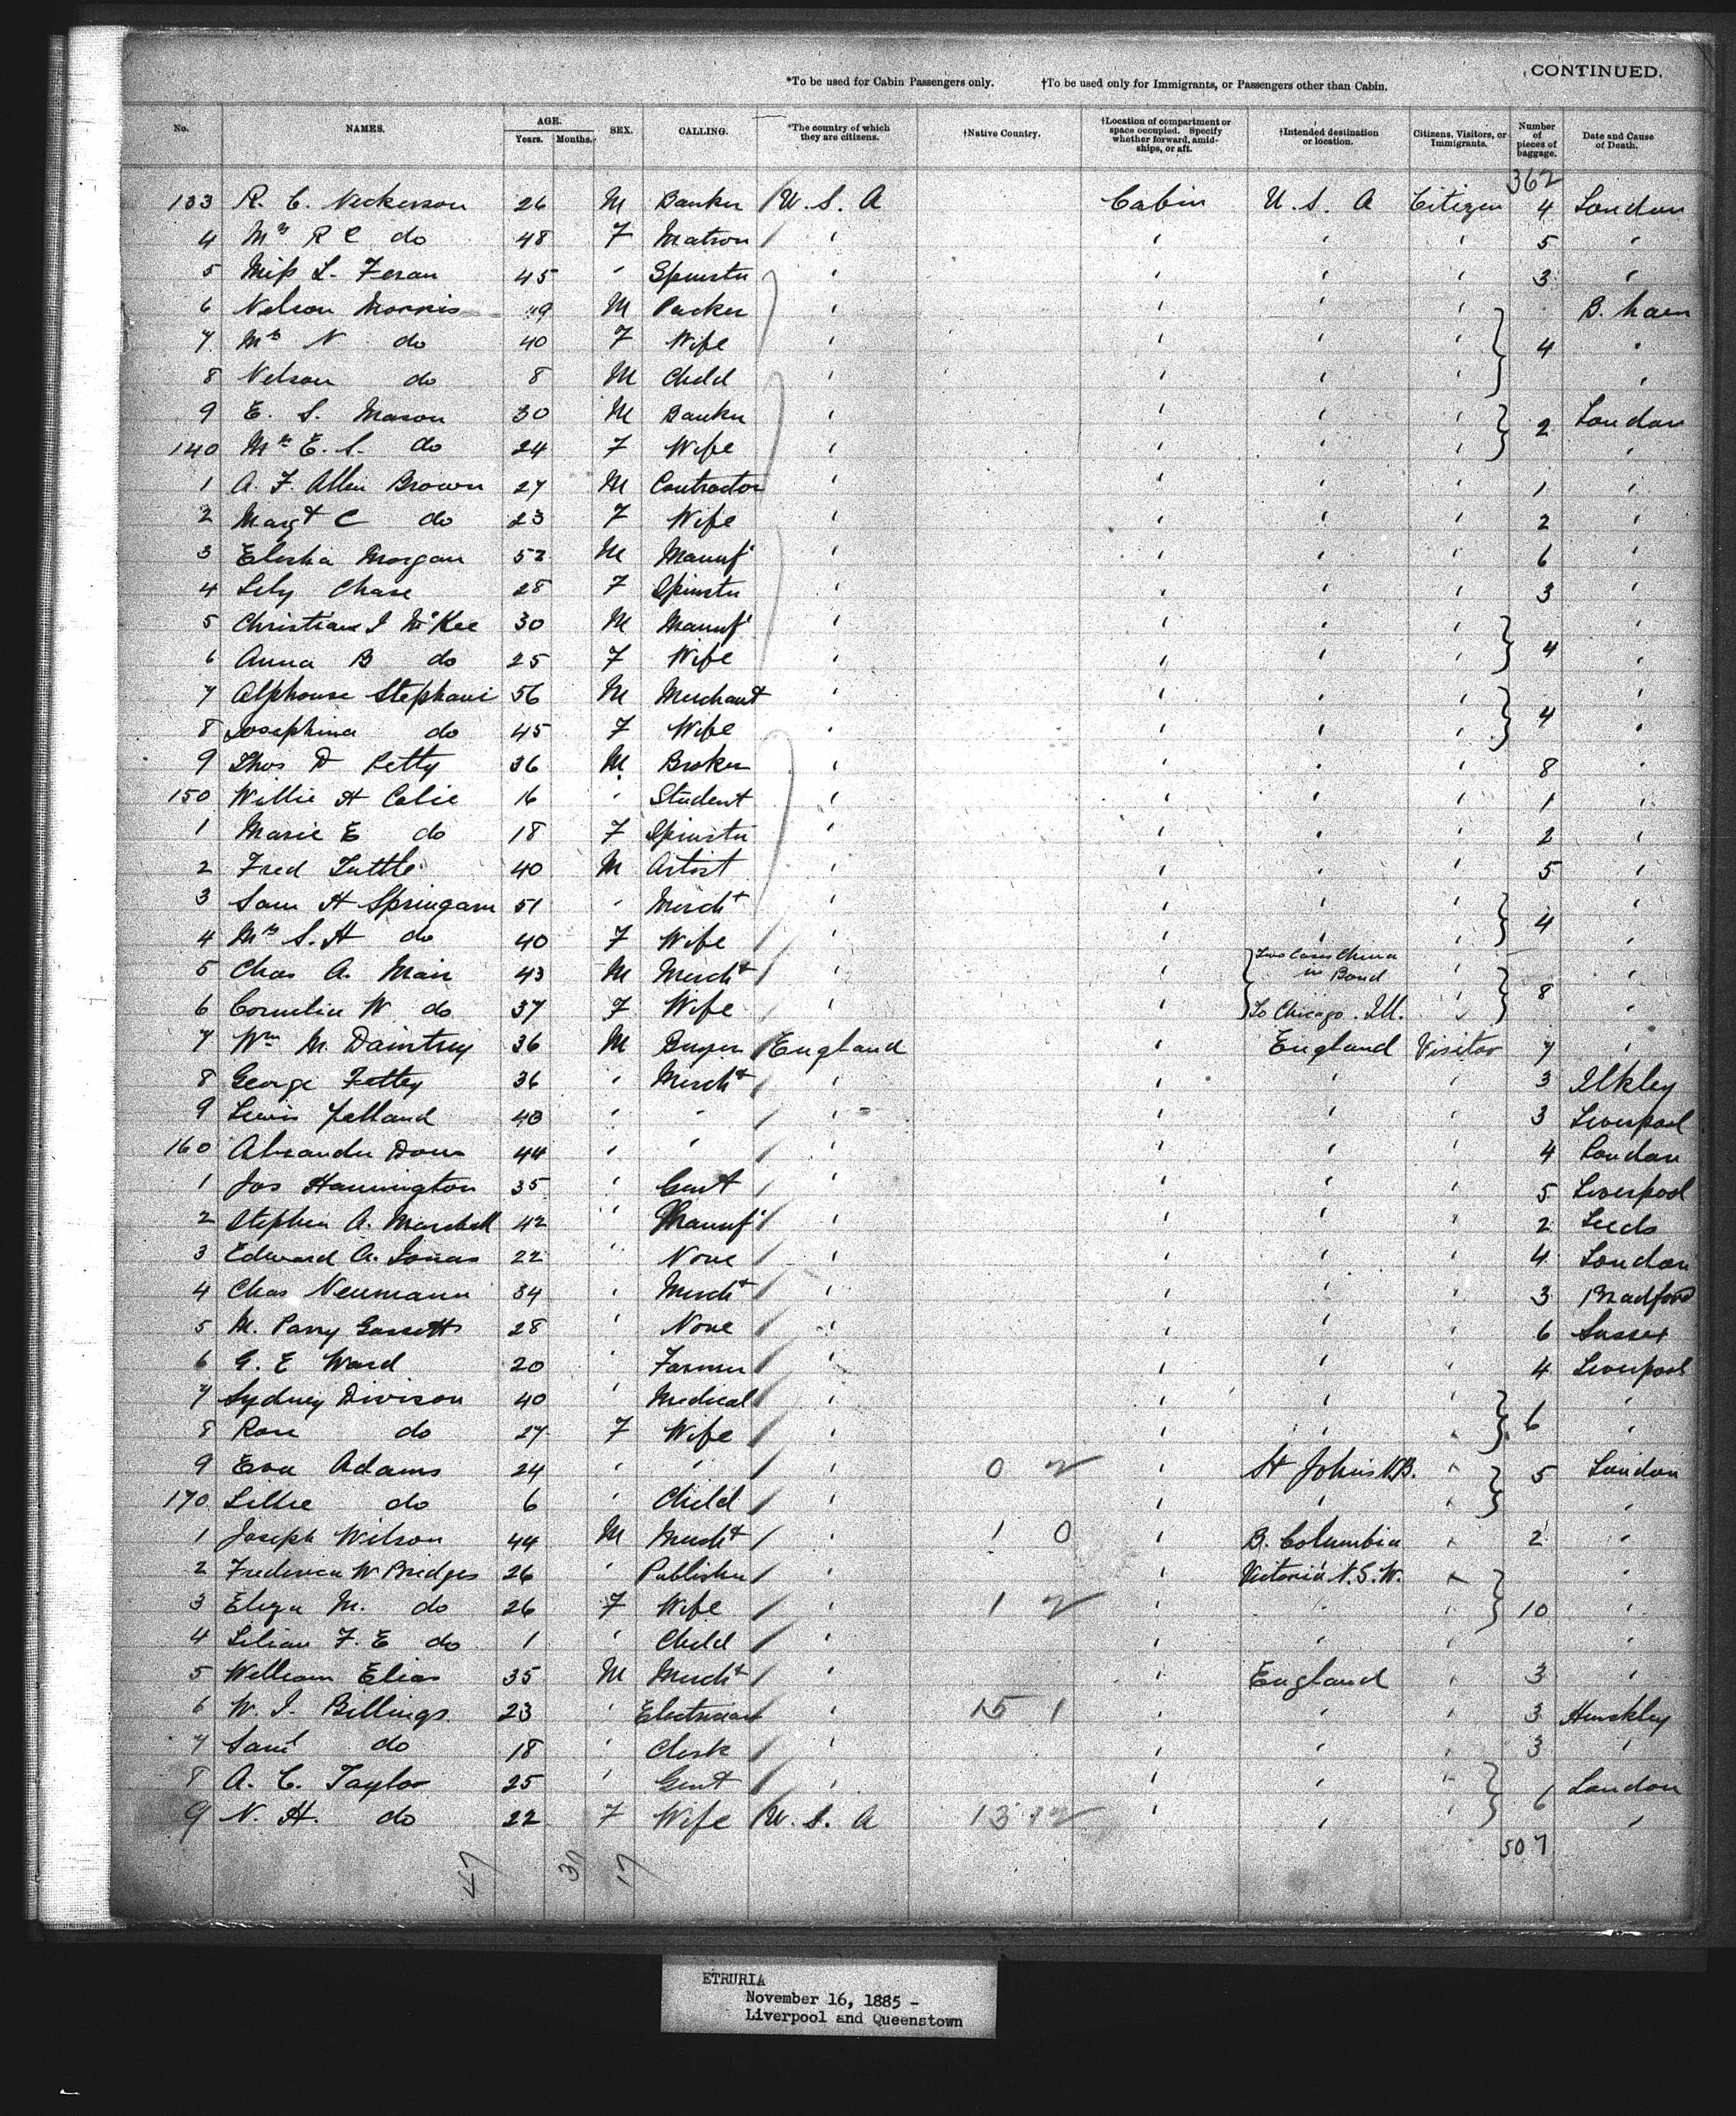 CONTINUED.
*To be used for Cabin Passengers only. †To be used only for Immigrants, or Passengers other than Cabin.
No. NAMES. AGE. Years. Months. SEX. CALLING. *The country of which they are citizens. †Native Country. †Location of compartment or space occupied. Specify whether forward, amidships, or aft. †Intended destination or location. Citizens, Visitors, or Immigrants. Number of pieces of baggage. Date and Cause of Death.
362
133 R. C. Nickerson 26 M Banker U. S. A Cabin U. S. A Citizen 4 London
4 Mrs R C do 48 F Matron ' ' ' ' 5 '
5 Miss L. Feran 45 ' Spinster ' ' ' ' 3 '
6 Nelson Morris 49 M Packer ' ' ' ' B. ham
7 Mrs N do 40 F Wife ' ' ' ' 4 '
8 Nelson do 8 M Child ' ' ' ' '
9 E. S. Mason 30 M Banker ' ' ' ' 2 London
140 Mrs E. S. do 24 F Wife ' ' ' ' '
1 A. F. Allen Brown 27 M Contractor ' ' ' ' 1 '
2 Margt C do 23 F Wife ' ' ' ' 2 '
3 Elisha Morgan 52 M Manufr ' ' ' ' 6 '
4 Lily Chase 28 F Spinster ' ' ' ' 3 '
5 Christian I McKee 30 M Manufr ' ' ' ' 4 '
6 Anna B do 25 F Wife ' ' ' ' '
7 Alphonse Stephani 56 M Merchant ' ' ' ' 4 '
8 Josephina do 45 F Wife ' ' ' ' '
9 Thos D Petty 36 M Broker ' ' ' ' 8 '
150 Willie H Colie 16 ' Student ' ' ' ' 1 '
1 Marie E do 18 F Spinster ' ' ' ' 2 '
2 Fred Tuttle 40 M Artist ' ' ' ' 5 '
3 Sam H Springarn 51 ' Mercht ' ' ' ' 4 '
4 Mrs S. H do 40 F Wife ' ' ' ' '
5 Chas A. Mair 43 M Mercht ' Two Cases China in Bond ' 8 '
6 Cornelia W do 37 F Wife ' To Chicago. Ill. ' '
7 Wm M. Daintrey 36 M Buyer England ' England Visitor 7 '
8 George 36 ' Mercht ' ' ' ' 3 Ilkley
9 Lewis Yelland 40 ' ' ' ' ' ' 3 Liverpool
160 Alexander 44 ' ' ' ' ' ' 4 London
1 Jos Hannington 35 ' Gent ' ' ' ' 5 Liverpool
2 Stephen A. Marshall 42 ' Manufr ' ' ' ' 2 Leeds
3 Edward A. Jonas 22 ' None ' ' ' ' 4 London
4 Chas Neumann 34 ' Mercht ' ' ' ' 3 Bradford
5 M. Parry Gossett 28 ' None ' ' ' ' 6 Sussex
6 G. E Ward 20 ' Farmer ' ' ' ' 4 Liverpool
7 Sydney Divison 40 ' Medical ' ' ' ' 6 '
8 Rose do 27 F Wife ' ' ' ' '
9 Eva Adams 24 ' ' ' 0 2 ' St Johns N.B. ' 5 London
170 Lillie do 6 ' Child ' ' ' ' '
1 Joseph Wilson 44 M Mercht ' 1 0 ' B. Columbia ' 2 '
2 Frederica W Bridges 26 ' Publisher ' ' Victoria N.S.W. ' '
3 Eliza M. do 26 F Wife ' 1 2 ' ' ' 10 '
4 Lilian F. E do 1 ' Child ' ' ' ' '
5 William Elias 35 M Mercht ' ' England ' 3 '
6 W. J. Billings 23 ' Electrician ' 15 1 ' ' ' 3 Hinckley
7 Saml do 18 ' Clerk ' ' ' ' 3 '
8 A. C. Taylor 25 ' Gent ' ' ' ' 6 London
9 N. H. do 22 F Wife U. S. A 13 12 ' ' ' '
507
47 30 17
ETRURIA
November 16, 1885 -
Liverpool and Queenstown